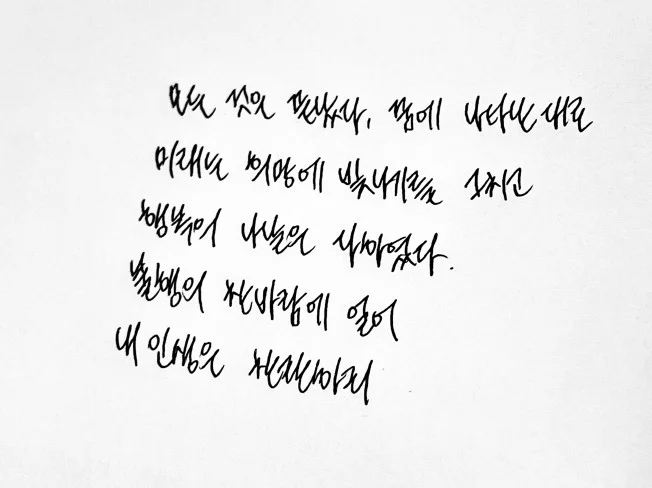 모든 것은 끝났다. 꿈에 나타난 대로
미래는 희망에 빛나기를 그치고
행복의 나날은 사라졌다.
불행의 찬바람에 얼어
내 인생은